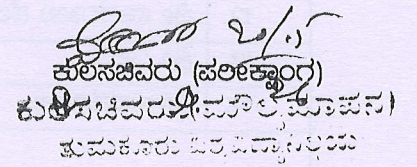 ಕುಲಸಚಿವರು (ಪರೀಕ್ಷಾಂಗ)
ಕುಲಸಚಿವರು (ಮೌಲ್ಯಮಾಪನ)
ತುಮಕೂರು ವಿಶ್ವವಿದ್ಯಾನಿಲಯ